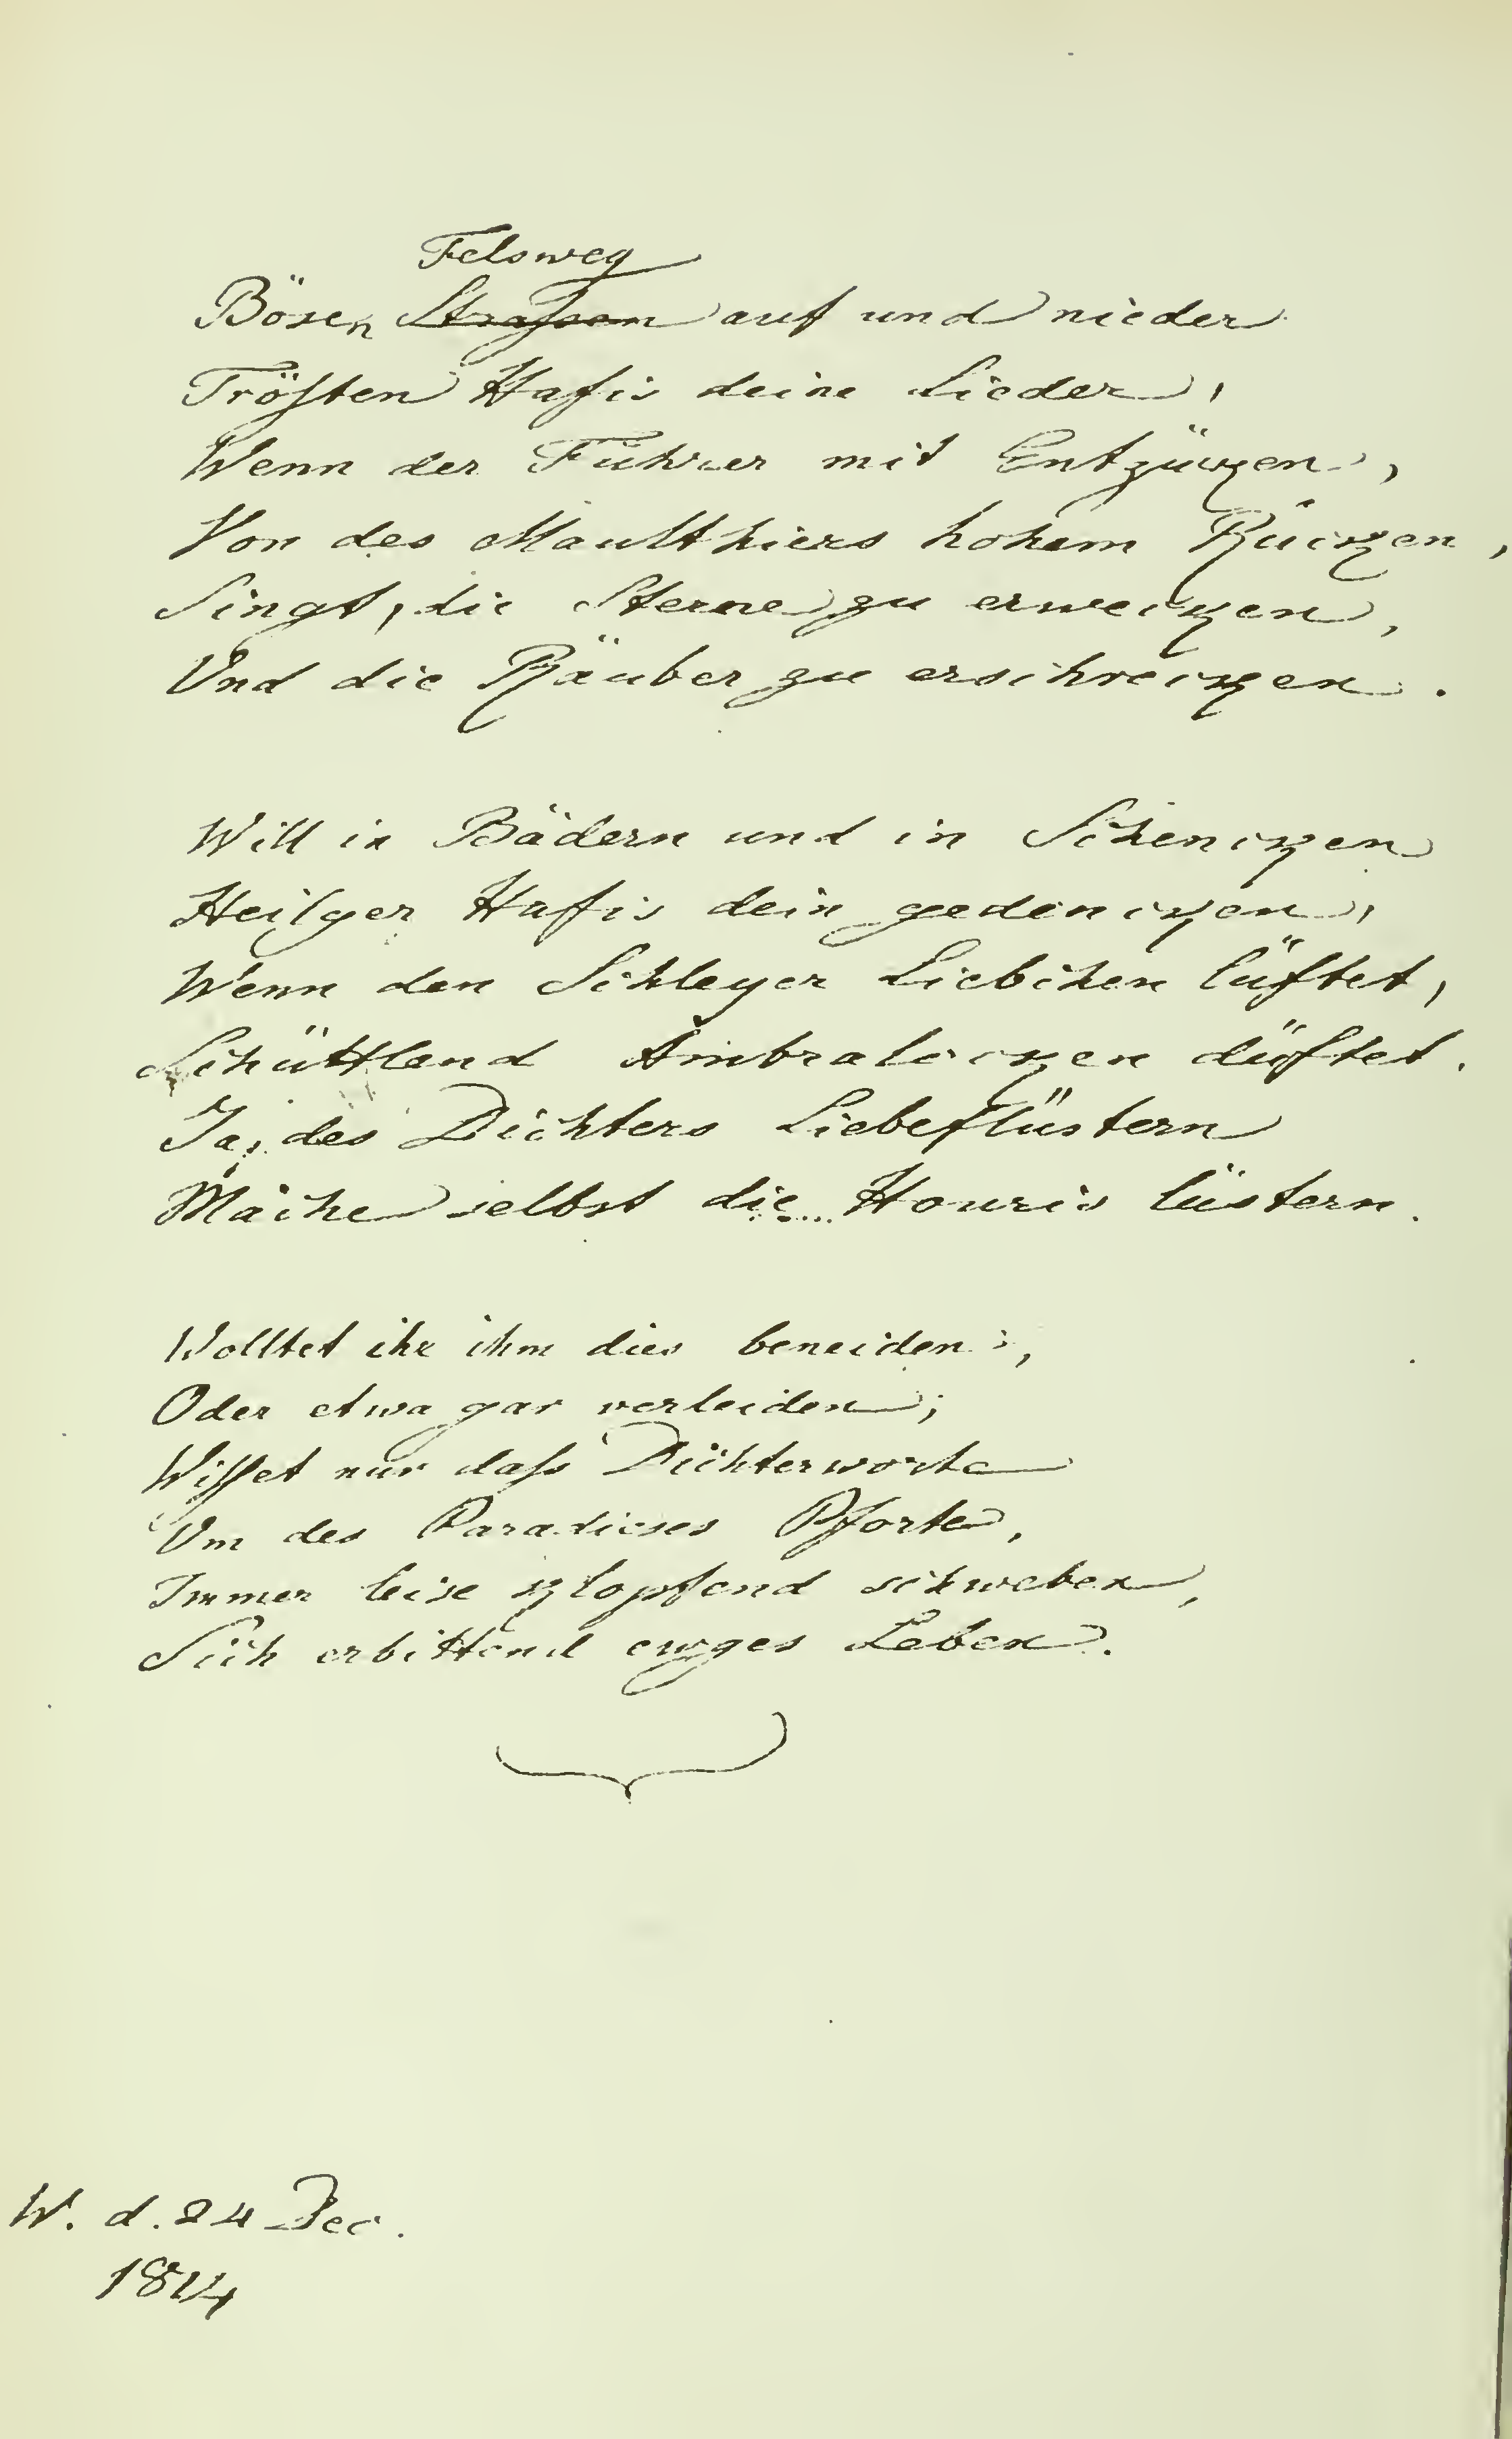 Felsweg
Bösen Strassen auf und nieder
Trösten Hafis deine Lieder,
Wenn der Führer mit Entzücken,
Von des Maulthiers hohem Rücken,
Singt, die Sterne zu erwecken,
Und die Räuber zu erschrecken.
Will in Bädern und in Schencken
Heilger Hafis dein gedencken,
Wenn den Schleyer Liebchen lüftet,
Schüttlend Ambralocken düftet.
Ja, des Dichters Liebeflüstern
Mache selbst die Houris lüstern.
Wolltet ihr ihm dies beneiden,
Oder etwa gar verleiden;
Wisset nur dass Dichterworte
Um des Paradieses Pforte,
Immer leise klopfend schweben,
Sich erbittend ewges Leben.
W. d. 24 Dec.
1814